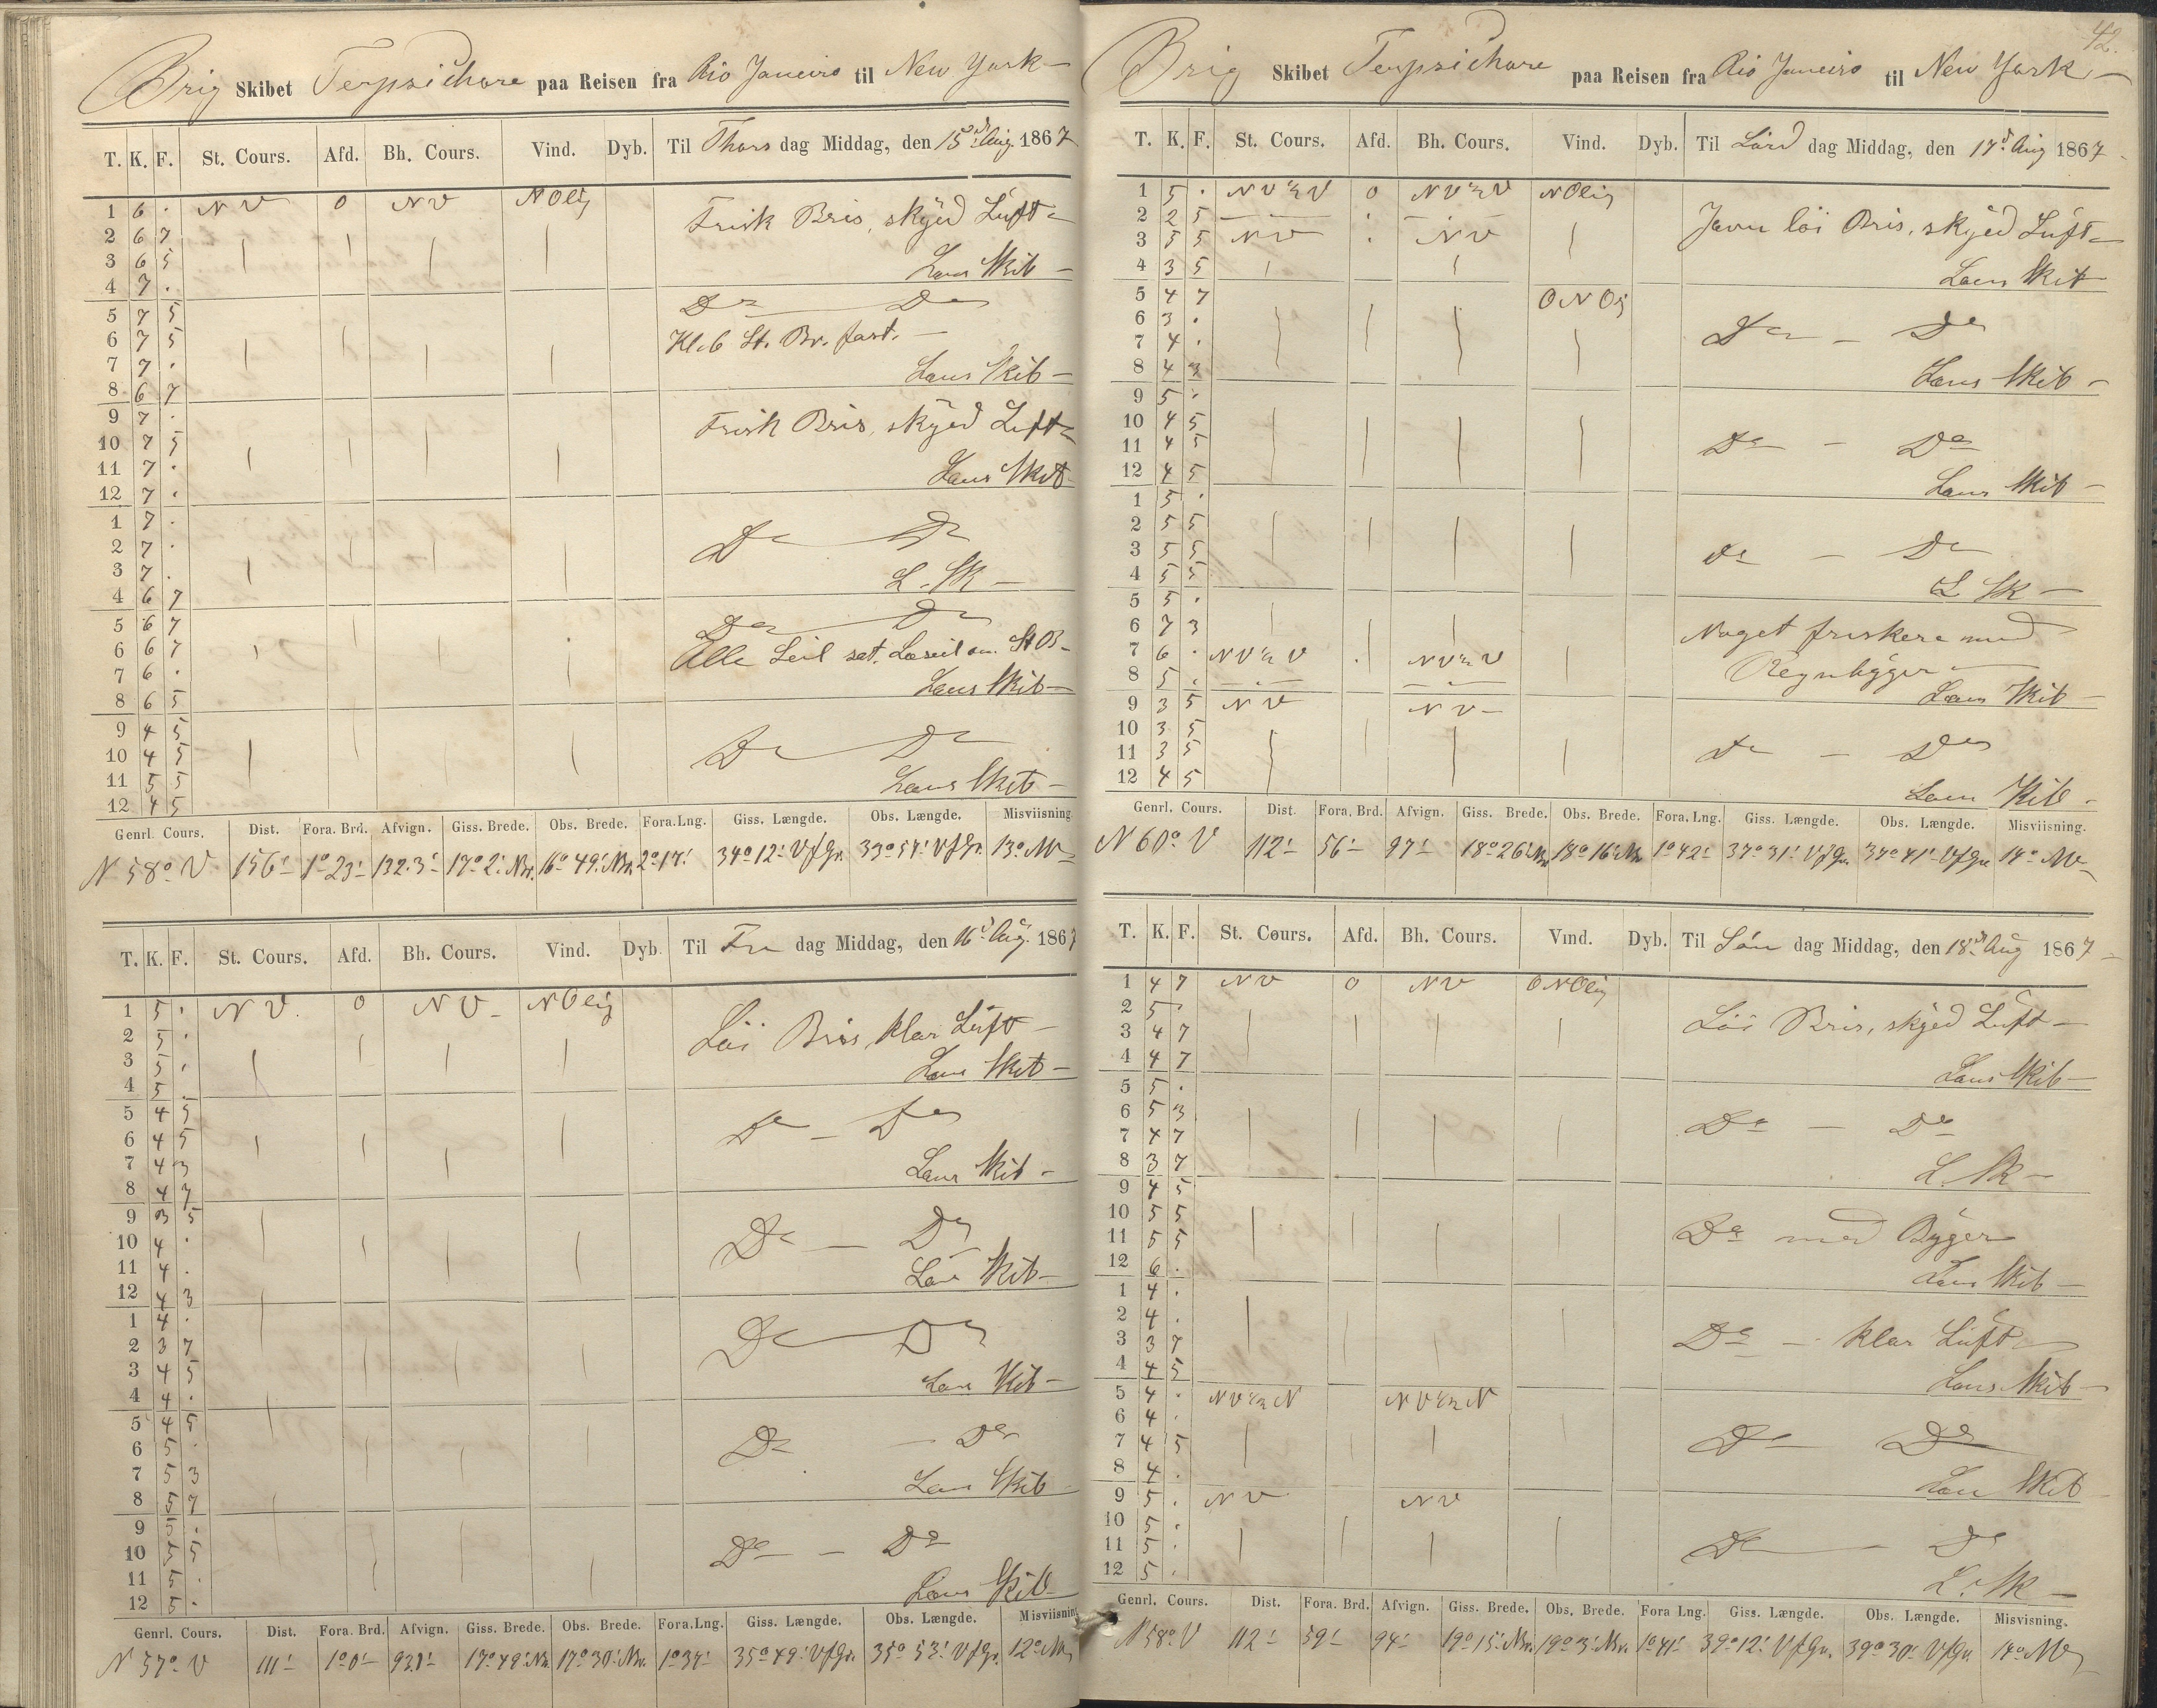 Brig Skibet Terpsichore paa Reisen fra Rio Janeiro til New York
T. K. F. St. Cours. Afd. Bh. Cours. Vind. Dyb. Til Thors dag Middag, den 15d Aug. 1867
1 6 . NV 0 NV NOlig Frisk Bris, skyed Luft
2 6 7
3 6 5 Lens Skib
4 7 .
5 7 5 Do Do
6 7 5 Kl. 6 St. Br. fast.
7 7 . Lens Skib
8 6 7
9 7 . Frisk Bris, skyed Luft
10 7 5
11 7 . Lens Skib
12 7 .
1 7 .
2 7 . Do Do
3 7 . L. Sk
4 6 7
5 6 7 Do Do
6 6 7 Alle Seil sat. Læseil St B
7 6 . Lens Skib
8 6 5
9 4 5
10 4 5 Do Do
11 5 5 Lens Skib
12 4 5
Genrl. Cours. Dist. Fora. Brd. Afvign. Giss. Brede. Obs. Brede. Fora. Lng. Giss. Længde. Obs. Længde. Misviisning
N 58° V 156' 1°23' 132.3' 17°2' Nr. 16°49' Nr. 2°17' 34°12' VfGr. 33°57' VfGr. 13° NV
T. K. F. St. Cours. Afd. Bh. Cours. Vind. Dyb. Til Fre dag Middag, den 16d Aug. 1867
1 5 . NV. 0 NV NOlig Löi Bris, klar Luft
2 5 .
3 5 . Lens Skib
4 5 .
5 4 5 Do Do
6 4 5
7 4 3 Lens Skib
8 4 7
9 3 5
10 4 . Do Do
11 4 . Lens Skib
12 4 3
1 4 .
2 3 7 Do Do
3 4 5 Lens Skib
4 4 .
5 4 5
6 5 . Do Do
7 5 3 Lens Skib
8 5 7
9 5 .
10 5 5 Do Do
11 5 . Lens Skib
12 5 .
Genrl. Cours. Dist. Fora. Brd. Afvign. Giss. Brede. Obs. Brede. Fora. Lng. Giss. Længde. Obs. Længde. Misviisning
N 57° V 111' 1°0' 93.1' 17°49' Nr. 17°30' Nr. 1°37' 35°49' VfGr. 35°53' VfGr. 12° NV
42.
Brig Skibet Terpsichore paa Reisen fra Rio Janeiro til New York
T. K. F. St. Cours. Afd. Bh. Cours. Vind. Dyb. Til Lörd dag Middag, den 17d Aug 1867
1 5 . NV½V 0 NV½V NOlig
2 2 5 Jevn löi Bris, skyed Luft
3 5 5 NV NV
4 3 5 Lens Skib
5 4 7 ONOlig
6 3 . Do Do
7 4 .
8 4 3 Lens Skib
9 5 .
10 4 5
11 4 5 Do Do
12 4 5 Lens Skib
1 5 .
2 5 5
3 5 5 Do Do
4 5 5 L. Sk
5 5 .
6 7 3 Noget friskere med
7 6 . NV½V NV½V Regnbyger
8 5 . Lens Skib
9 3 5 NV NV
10 3 5
11 3 5 Do Do
12 4 5 Lens Skib
Genrl. Cours. Dist. Fora. Brd. Afvign. Giss. Brede. Obs. Brede. Fora. Lng. Giss. Længde. Obs. Længde. Misviisning.
N 60° V 112' 56' 97' 18°26' Nr. 18°16' Nr. 1°42' 37°31' VfGr. 37°41' VfGr. 14° NV
T. K. F. St. Cours. Afd. Bh. Cours. Vind. Dyb. Til Sön dag Middag, den 18d Aug 1867
1 4 7 NV 0 NV ONOlig
2 5 . Löi Bris, skyed Luft
3 4 7
4 4 7 Lens Skib
5 5 .
6 5 3 Do Do
7 4 7
8 3 7 L. Sk
9 4 5
10 5 5 Do med Byger
11 5 5
12 6 . Lens Skib
1 4 .
2 4 . Do klar Luft
3 3 7
4 4 5 Lens Skib
5 4 . NV½N NV½N
6 4 . Do Do
7 4 5
8 4 . Lens Skib
9 5 . NV NV
10 5 . Do Do
11 5 .
12 5 . L. Sk
Genrl. Cours. Dist. Fora. Brd. Afvign. Giss. Brede. Obs. Brede. Fora Lng. Giss. Længde. Obs. Længde. Misvisning.
N 58° V 112' 59' 94' 19°15' Nr. 19°3' Nr. 1°41' 39°12' VfGr. 39°30' VfGr. 14° NV